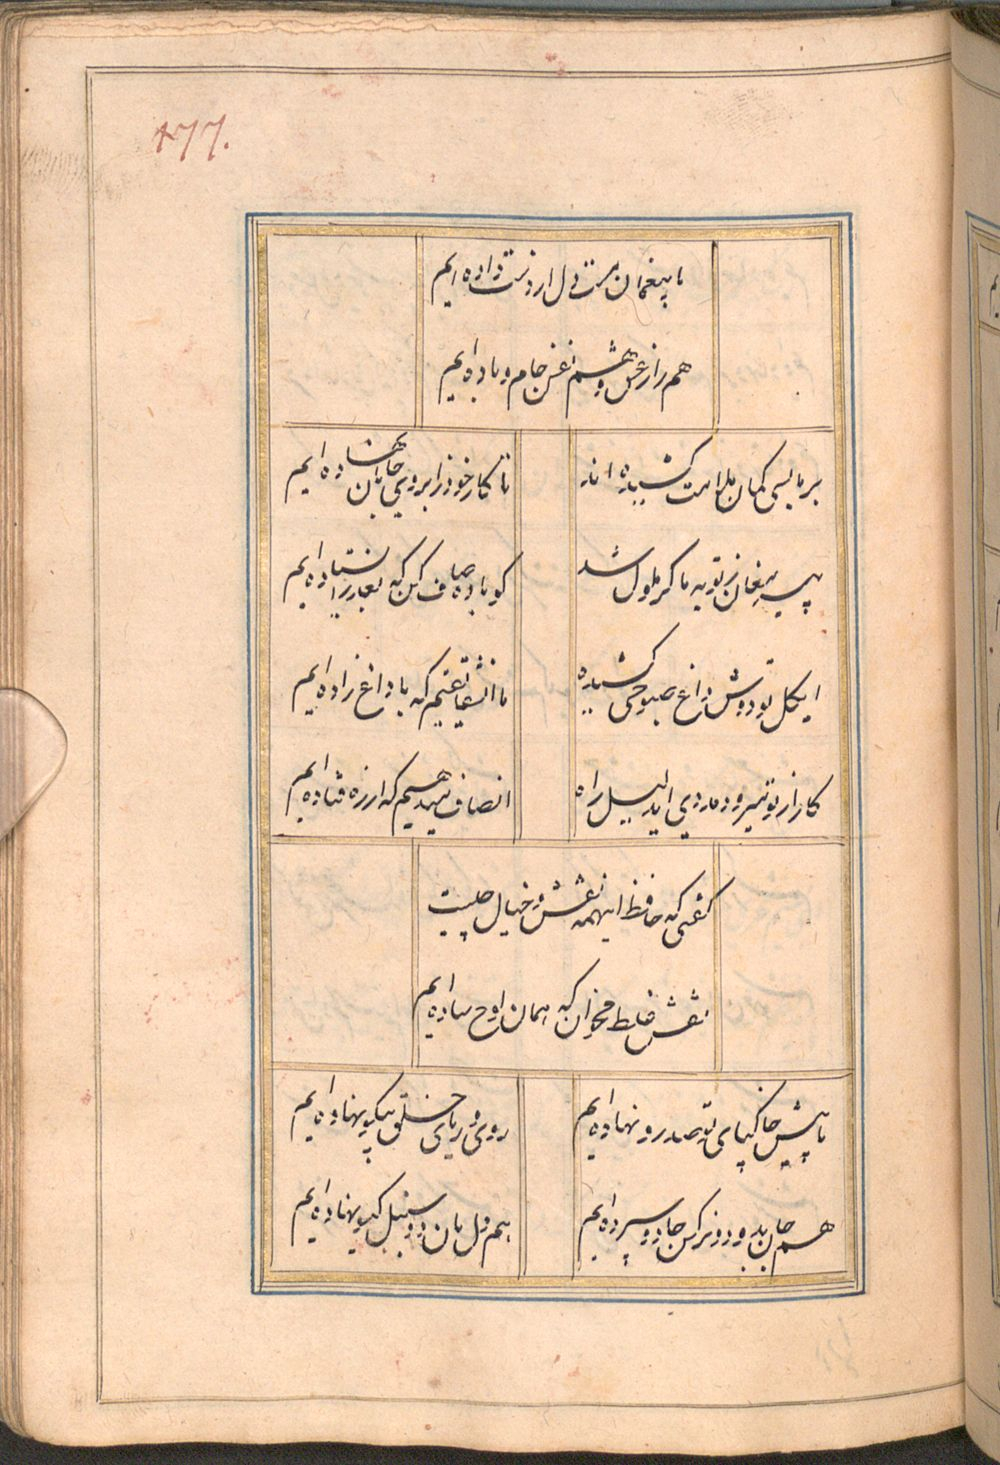 477.
ما بیغمان مست دل از دست داده ایم
هم راز عشق و هم نفس جام و باده ایم
بر ما بسی کمان ملامت کشیده اند
تا کار خود ز ابروی جانان کشاده ایم
پیر مغان ز توبه ما کر ملول شد
کو باده صاف کن که بعذر ایستاده ایم
ایکل تو دوش داغ صبوحی کشیده
ما آن شقایقیم که با داغ زاده ایم
کار از تو میرود مددی ای دلیل راه
انصاف میدهیم که از ره فتاده ایم
کفتی که حافظ اینهمه نقش و خیال چیست
نقش غلط مخوان که همان لوح ساده ایم
ما پیش خاکپای تو صد رو نهاده ایم
روی و ریای خلق بیکسو نهاده ایم
هم جان بدو دو نرکس جادو سپرده ایم
هم دل بان دو سنبل نهاده ایم